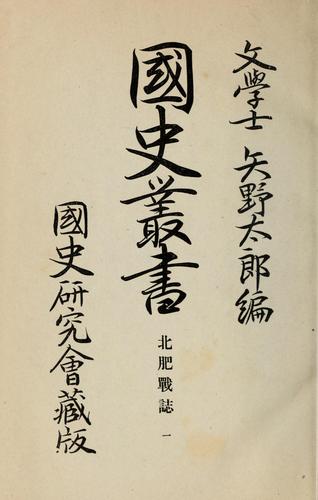 文學士 矢野太郎編
國史叢書
北肥戰誌 一
國史研究會藏版